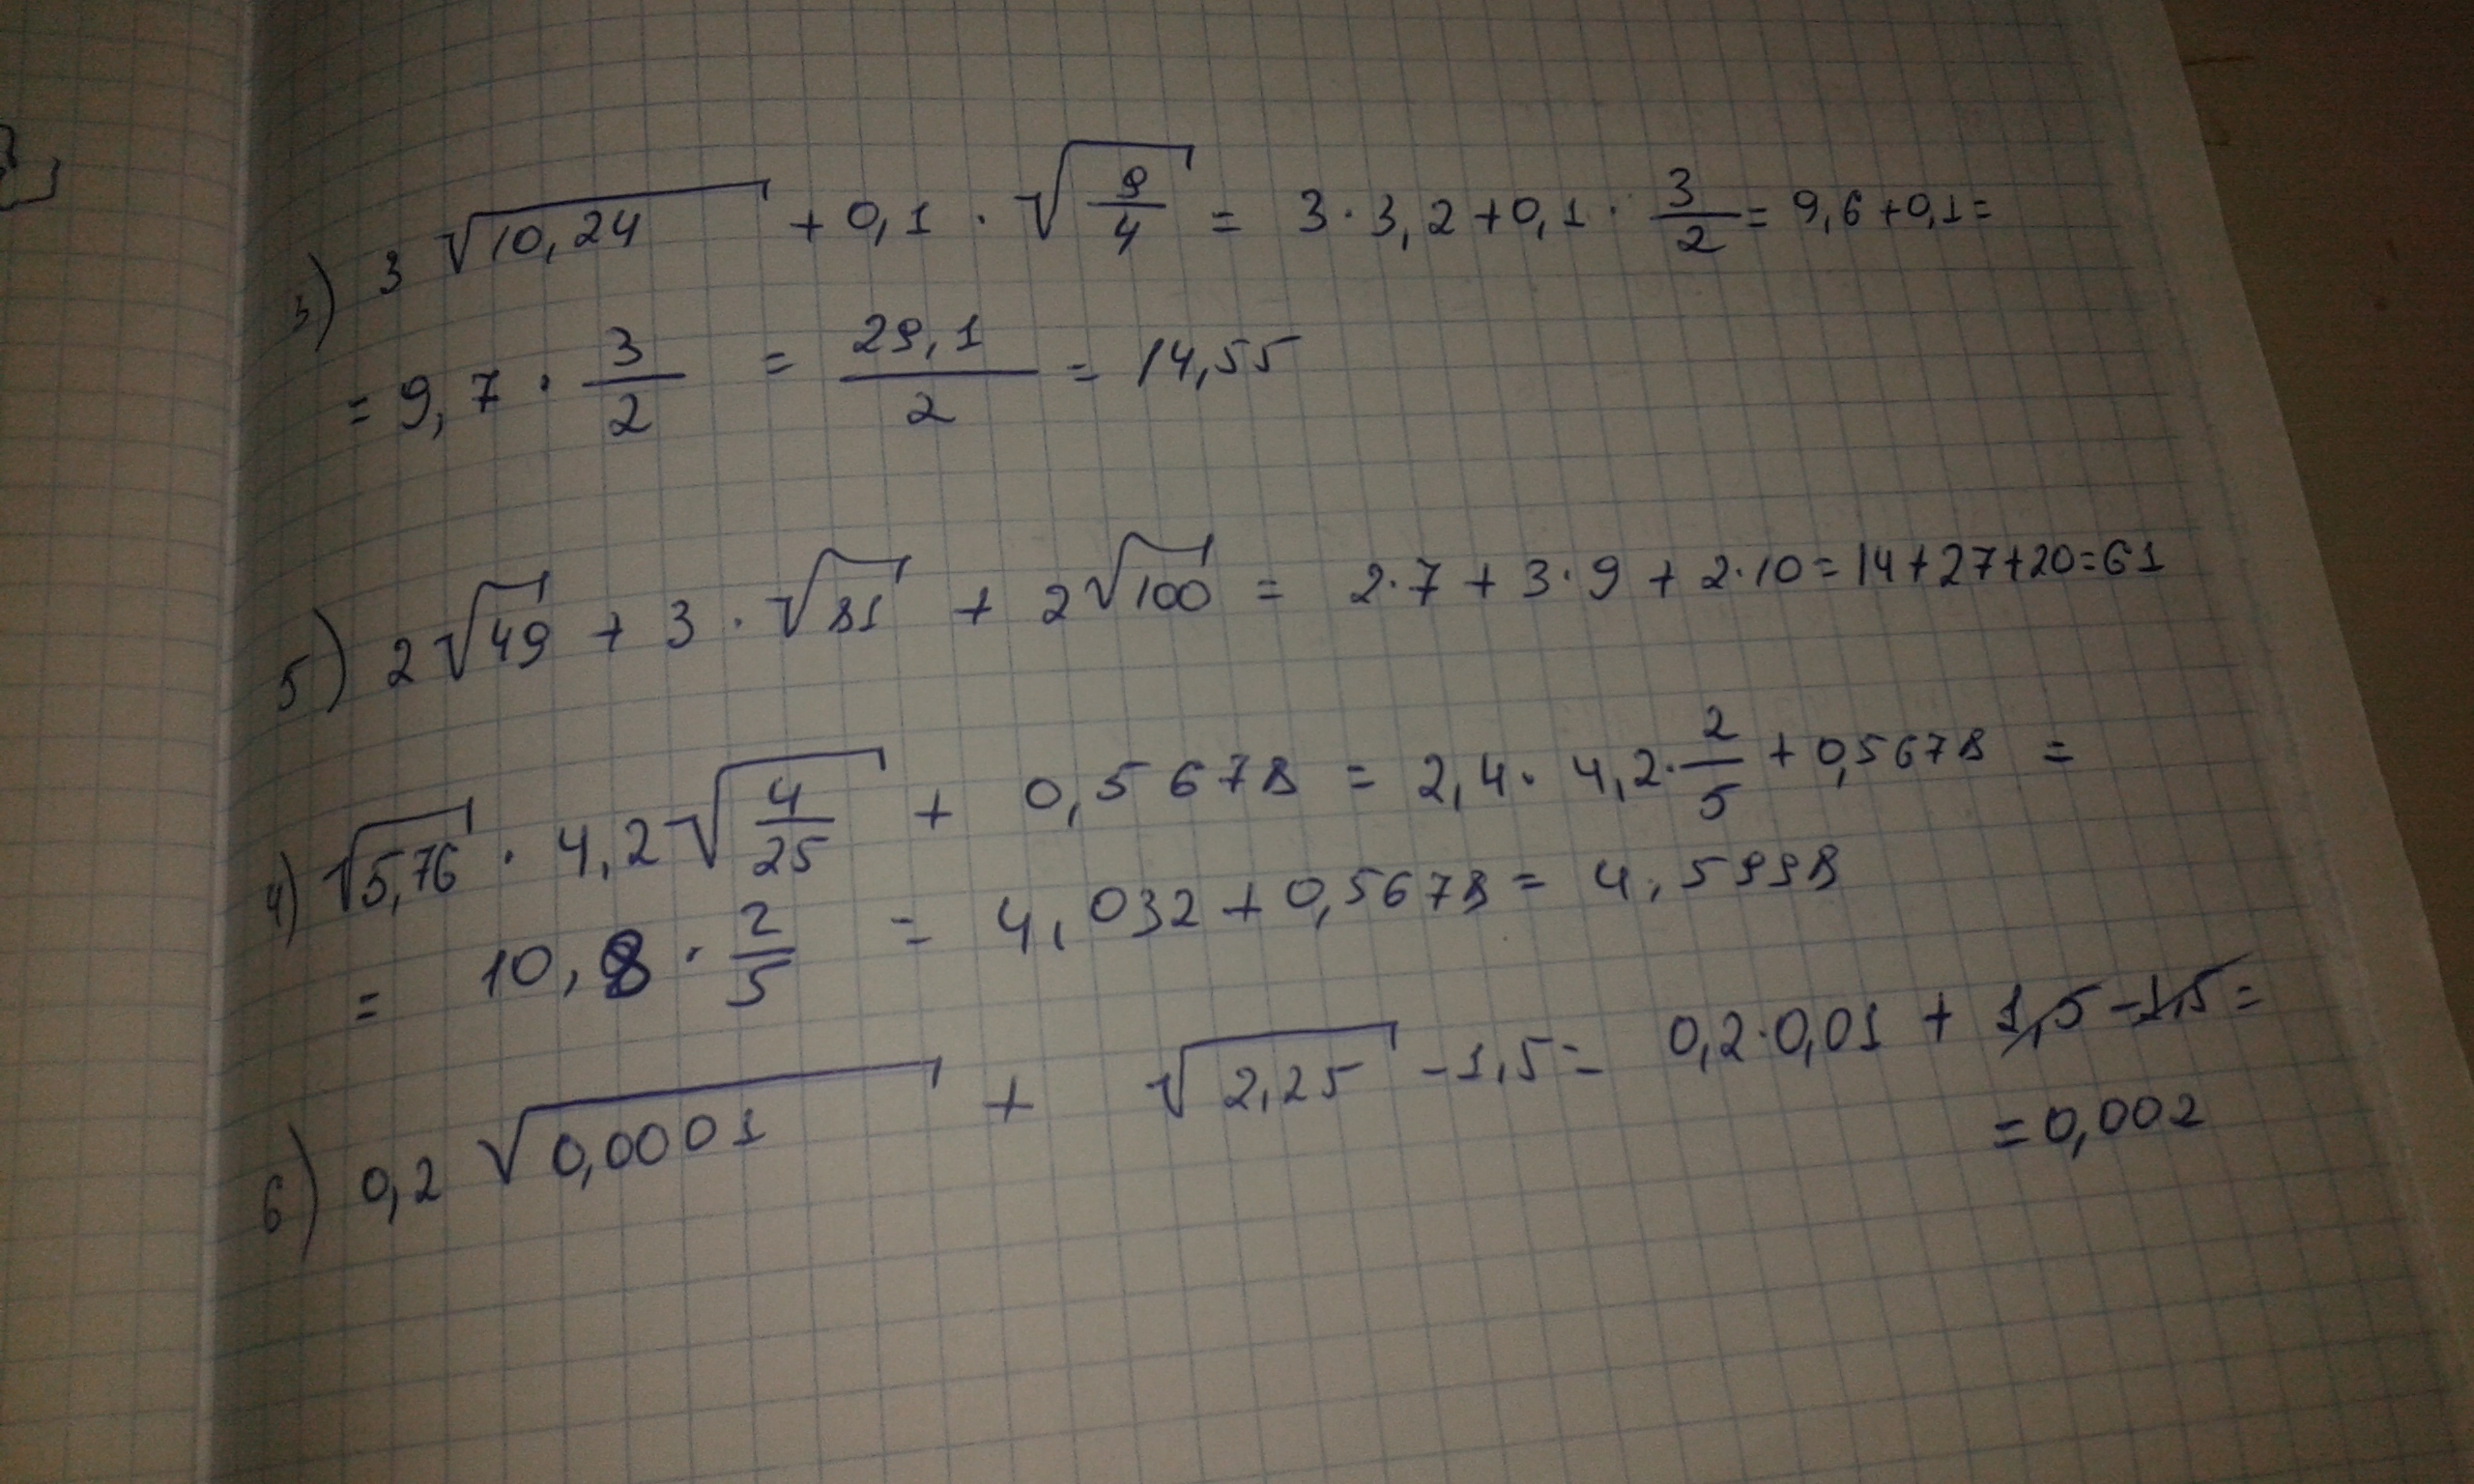 3) 3 √10,24 + 0,1 · √9/4 = 3 · 3,2 + 0,1 · 3/2 = 9,6 + 0,1 =
= 9,7 · 3/2 = 29,1/2 = 14,55
5) 2√49 + 3 · √81 + 2√100 = 2·7 + 3·9 + 2·10 = 14+27+20=61
4) √5,76 · 4,2√4/25 + 0,5678 = 2,4 · 4,2 · 2/5 + 0,5678 =
= 10,8 · 2/5 = 4,032 + 0,5678 = 4,5998
6) 0,2 √0,0001 + √2,25 - 1,5 = 0,2·0,01 + 1,5 - 1,5 =
= 0,002